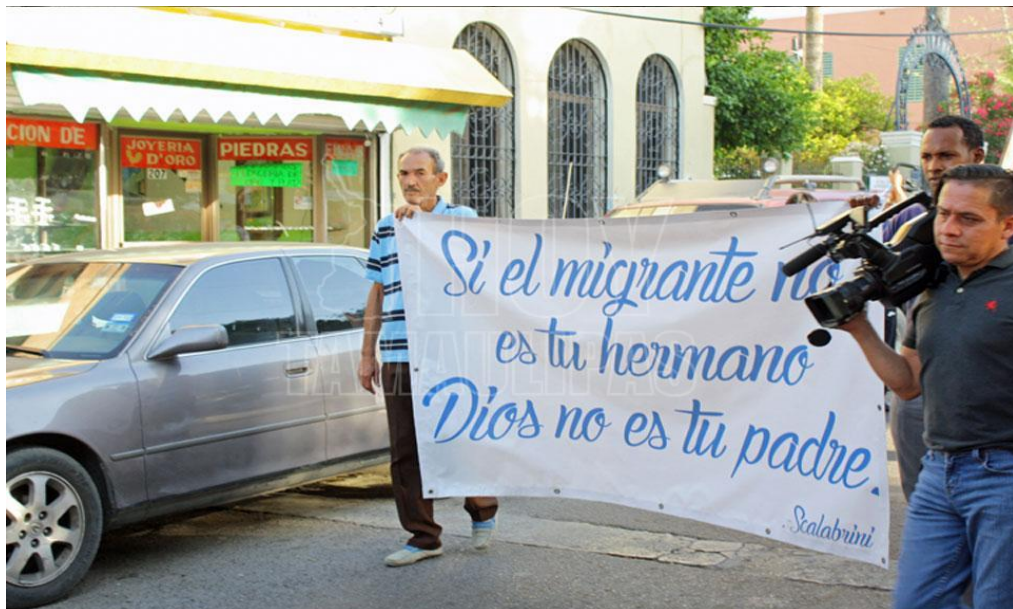 CION DE
JOYERIA
D'ORO
207
PIEDRAS
Si el migrante no
es tu hermano
Dios no es tu padre.
Scalabrini
HOY
TAMAULIPAS